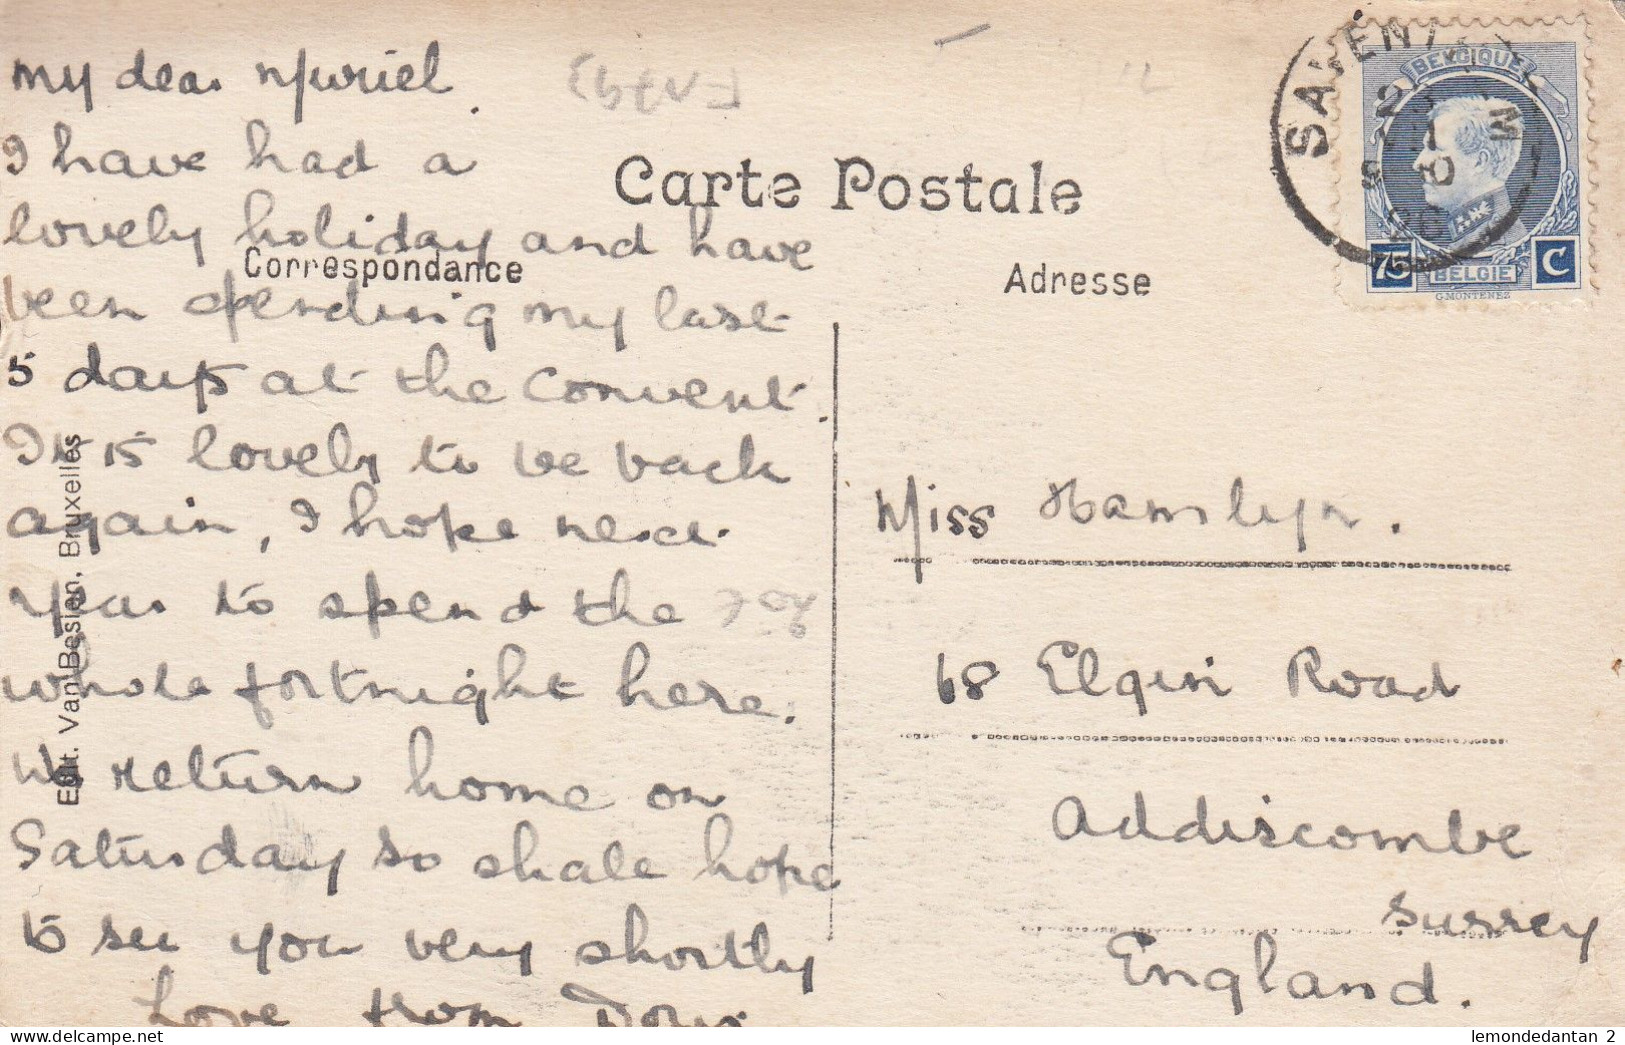 My dear Muriel.
I have had a
lovely holiday and have
been spending my last
5 days at the convent.
It is lovely to be back
again, I hope next
year to spend the
whole fortnight here.
We return home on
Saturday so shall hope
to see you very shortly
Love from Doris
Carte Postale
Correspondance
Adresse
Edit. Van Besien, Bruxelles
BELGIQUE
75 BELGIE C
G.MONTENEZ
Miss Hamlyn.
68 Elgin Road
Addiscombe
Surrey
England.
lemondedantan 2